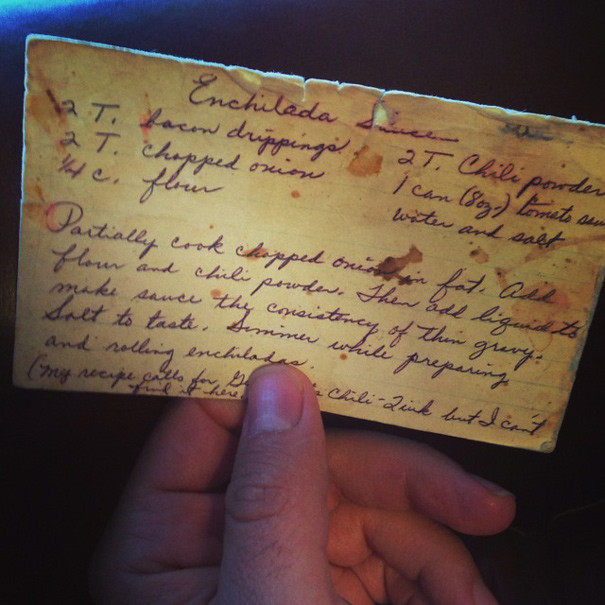 Enchilada Sauce
2 T. bacon drippings
2 T. chopped onion
1/4 c. flour
2 T. Chili powder
1 can (8oz.) tomato
water and salt
Partially cook chopped onion in fat. Add
flour and chili powder. Then add liquid to
make sauce the consistency of thin gravy.
Salt to taste. Simmer while preparing
and rolling enchiladas.
(My recipe calls for Chili-Quik but I can't
find it here.